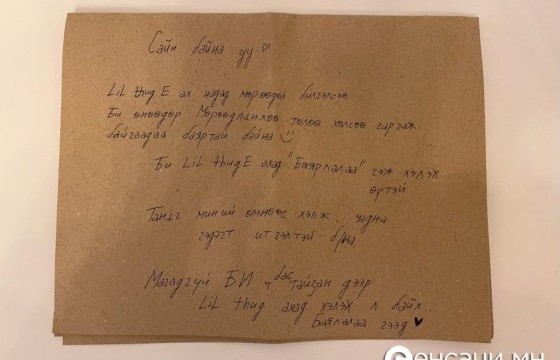 Сайн байна уу ♡
LiL thug E ах надад мөрөөдөл бэлгэлсэн
Би өнөөдөр Мөрөөдлийнхөө төлөө хөлсөө гаргаж
байгаадаа баяртай байна
Би LiL thug E ахад "Баярлалаа" гэж хэлэх
өртэй
Таныг миний өмнөөс хэлж... чадна
гэдэгт итгэлтэй б/на.
Магадгүй БИ ч бас тайзан дээр
LiL thug ахад хэлэх л байх...
Баялалаа гээд ♥
сэнсаци.мн